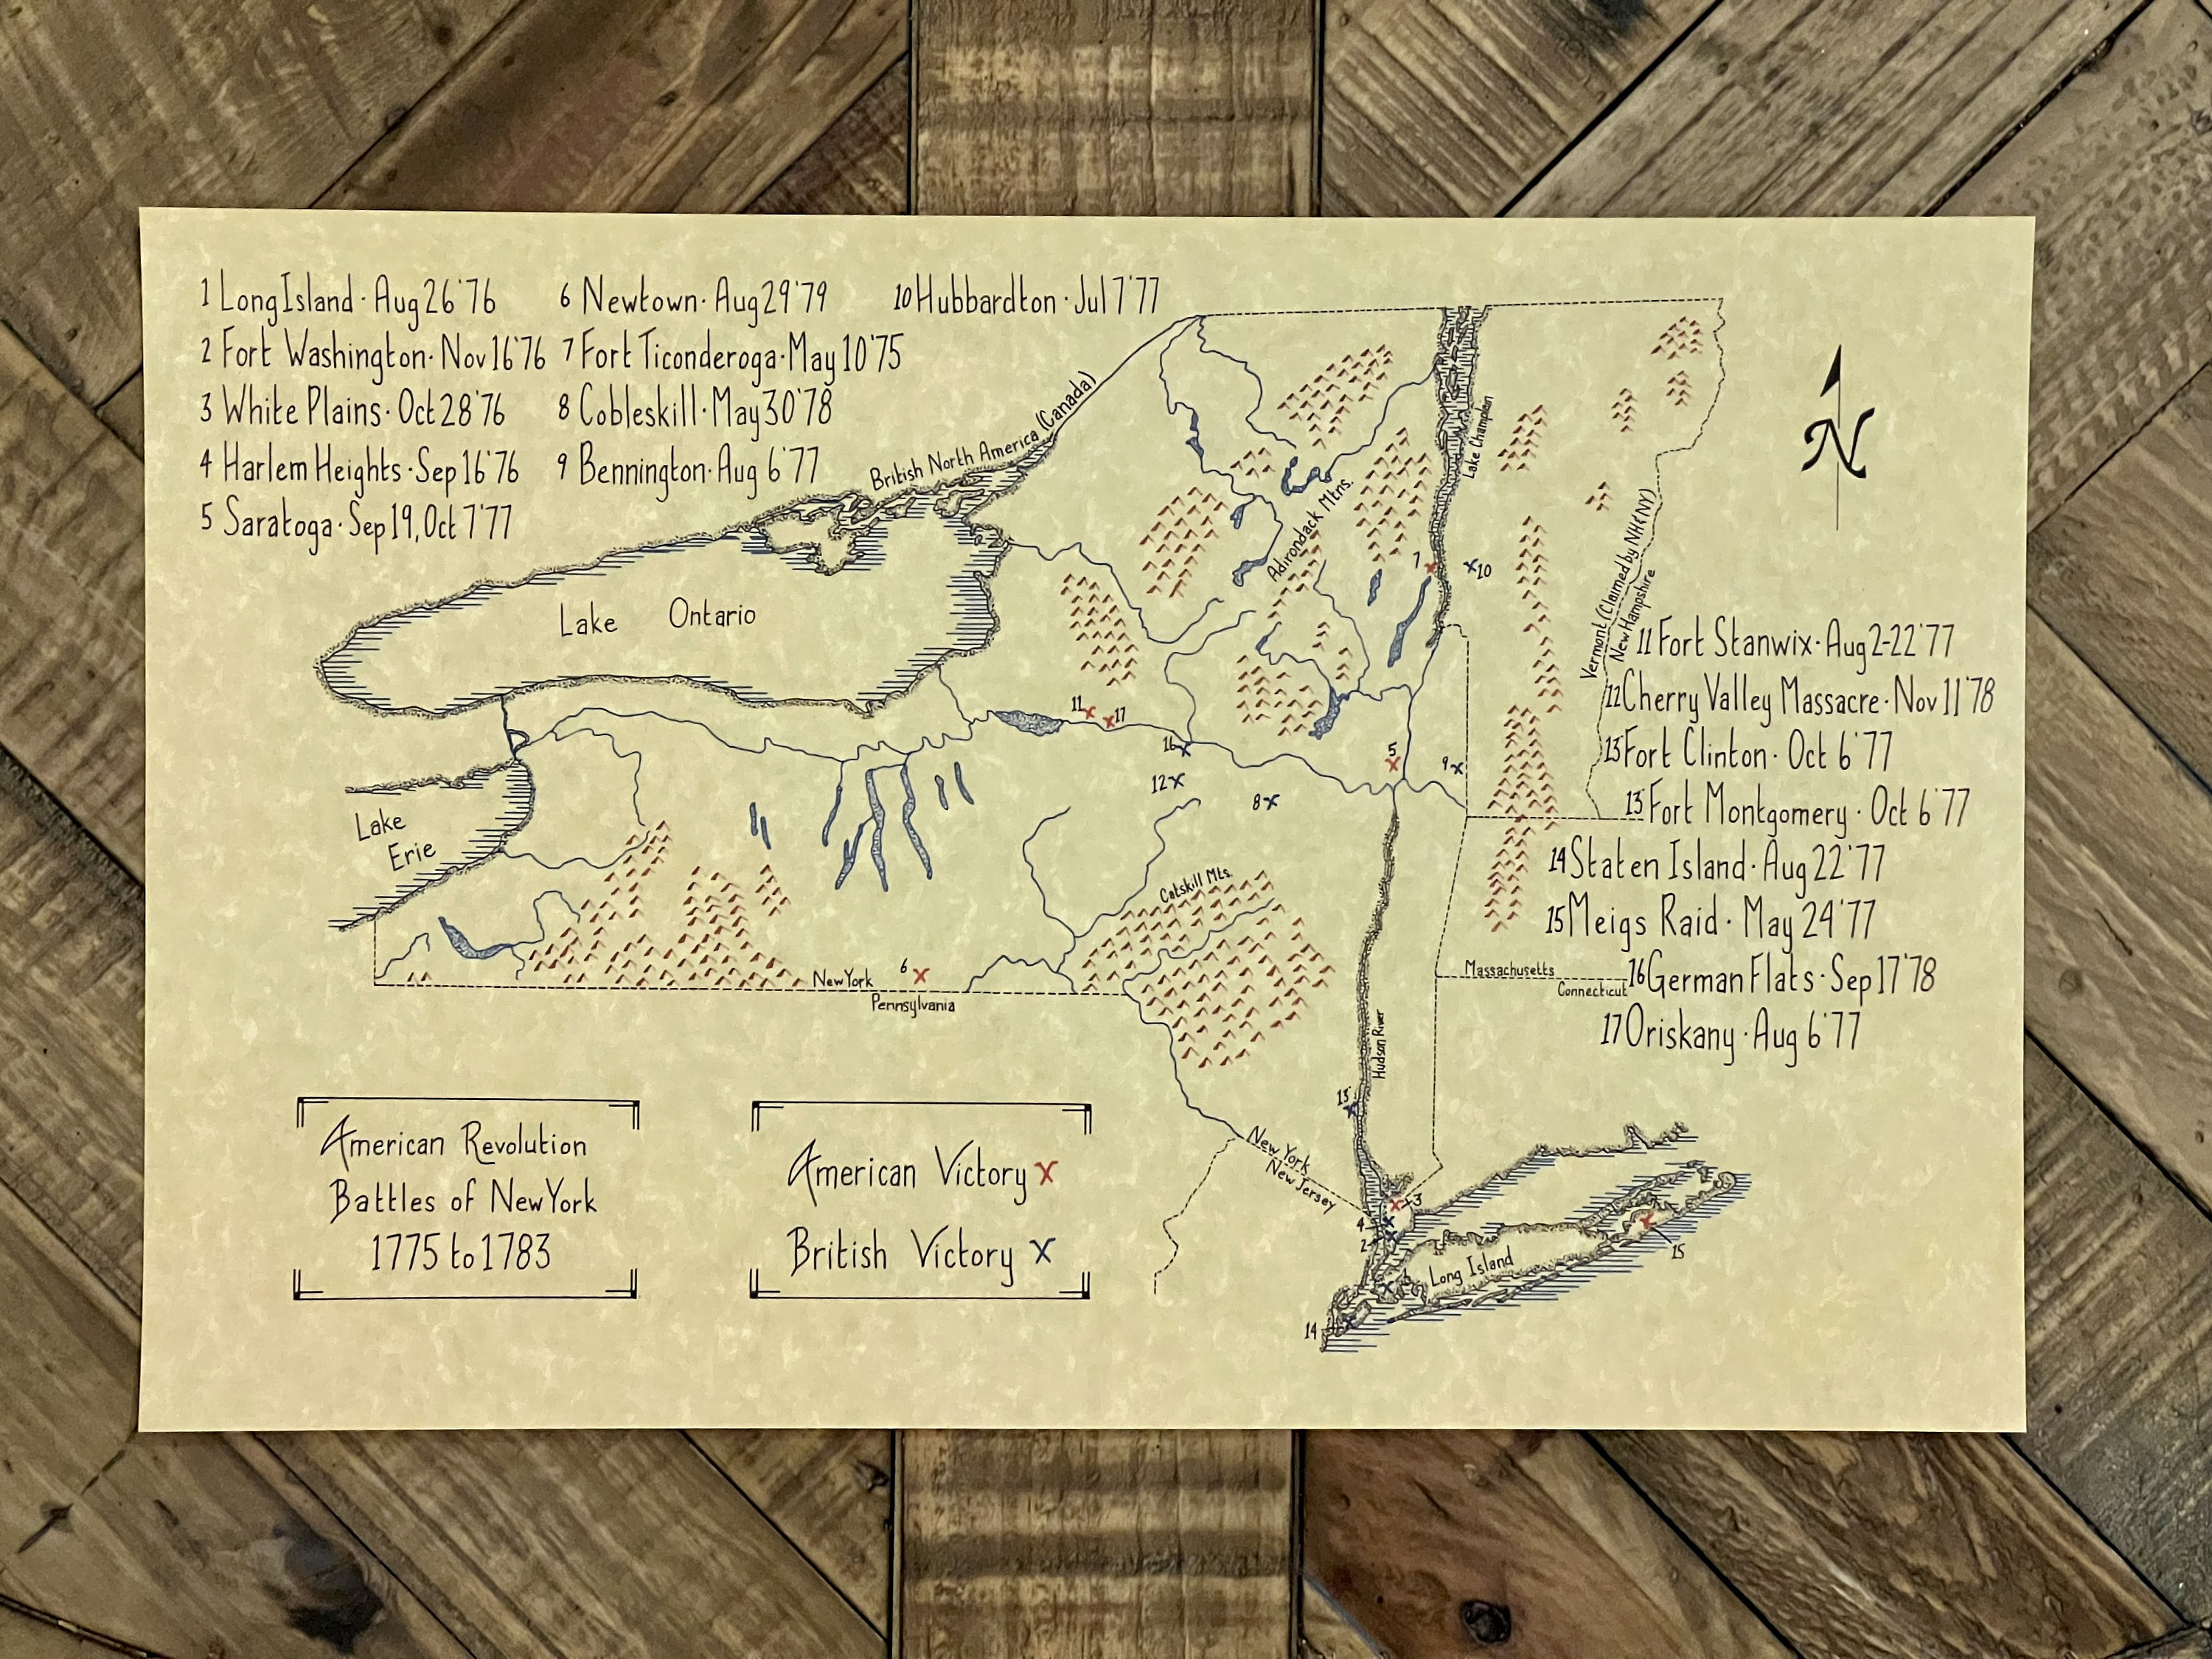 1 Long Island · Aug 26 '76
2 Fort Washington · Nov 16 '76
3 White Plains · Oct 28 '76
4 Harlem Heights · Sep 16 '76
5 Saratoga · Sep 19, Oct 7 '77
6 Newtown · Aug 29 '79
7 Fort Ticonderoga · May 10 '75
8 Cobleskill · May 30 '78
9 Bennington · Aug 6 '77
10 Hubbardton · Jul 7 '77
British North America (Canada)
Lake Ontario
Lake
Erie
Adirondack Mtns.
Lake Champlen
7
10
N
Vermont (Claimed by NH & NY)
New Hampshire
11 Fort Stanwix · Aug 2-22 '77
12 Cherry Valley Massacre · Nov 11 '78
13 Fort Clinton · Oct 6 '77
13' Fort Montgomery · Oct 6 '77
14 Staten Island · Aug 22 '77
15 Meigs Raid · May 24 '77
16 German Flats · Sep 17 '78
17 Oriskany · Aug 6 '77
11
17
16
5
9
12
8
Catskill Mts.
6
New York
Pennsylvania
Massachusetts
Connecticut
Hudson River
13'
New York
New Jersey
3
4
2
Long Island
15
14
American Revolution
Battles of New York
1775 to 1783
American Victory X
British Victory X